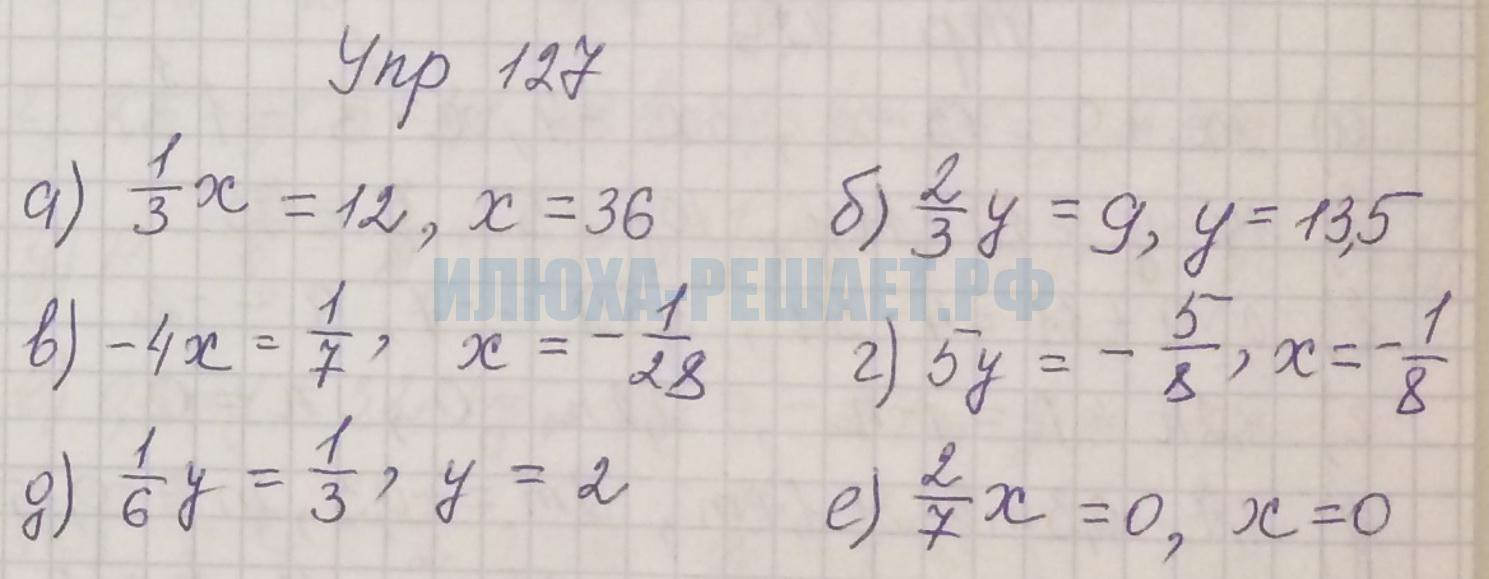 Упр 127
а) 1/3 x = 12, x = 36 б) 2/3 y = 9, y = 13,5
ИЛЮХА-РЕШАЕТ.РФ
в) -4x = 1/7, x = -1/28 г) 5y = -5/8, x = -1/8
д) 1/6 y = 1/3, y = 2 е) 2/7 x = 0, x = 0